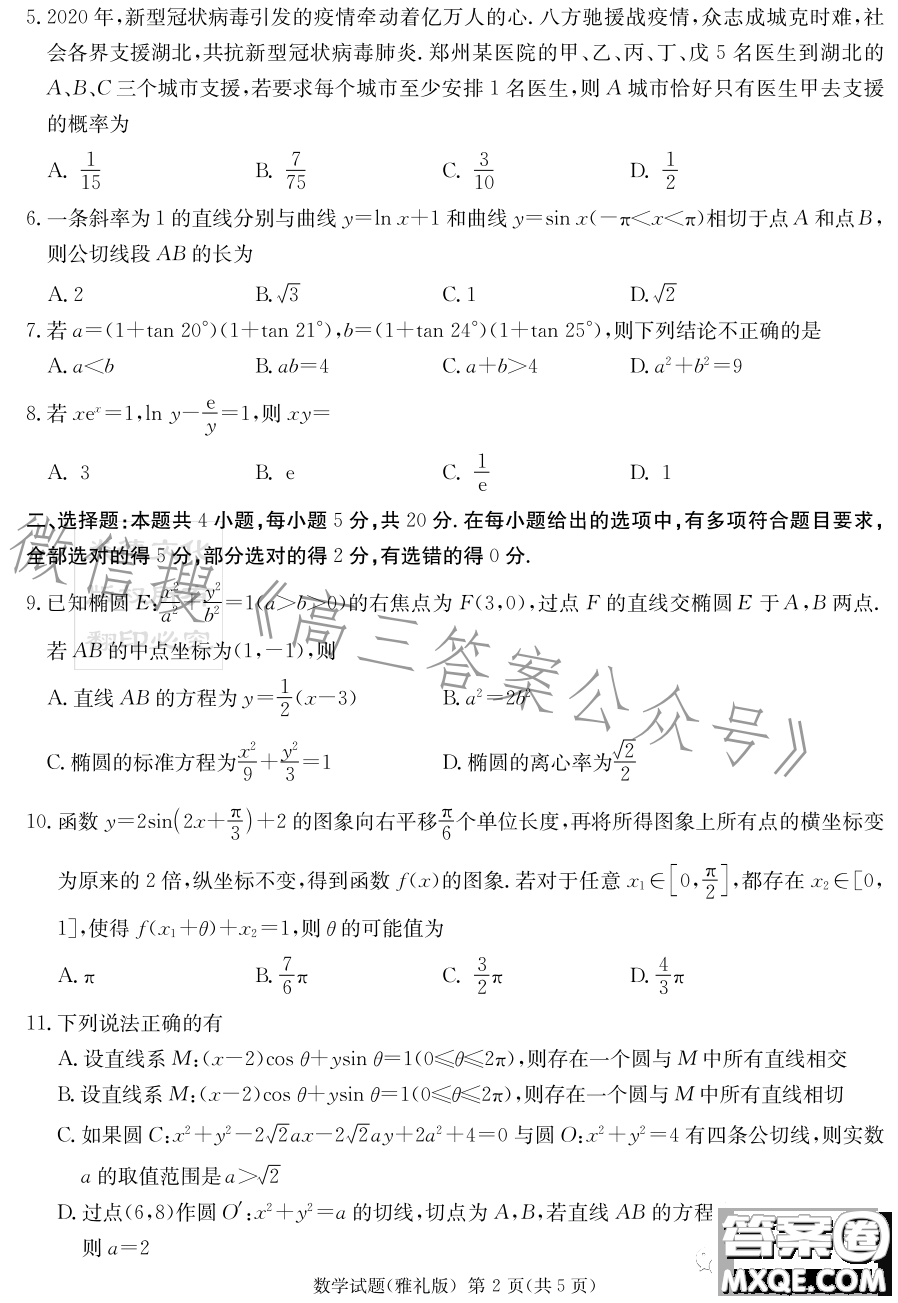 5. 2020 年,新型冠状病毒引发的疫情牵动着亿万人的心. 八方驰援战疫情,众志成城克时难,社
会各界支援湖北,共抗新型冠状病毒肺炎. 郑州某医院的甲、乙、丙、丁、戊 5 名医生到湖北的
A、B、C 三个城市支援,若要求每个城市至少安排 1 名医生,则 A 城市恰好只有医生甲去支援
的概率为
A. 1/15 B. 7/75 C. 3/10 D. 1/2
6. 一条斜率为 1 的直线分别与曲线 y=ln x+1 和曲线 y=sin x(-π<x<π)相切于点 A 和点B,
则公切线段 AB 的长为
A. 2 B. √3 C. 1 D. √2
7. 若 a=(1+tan 20°)(1+tan 21°),b=(1+tan 24°)(1+tan 25°),则下列结论不正确的是
A. a<b B. ab=4 C. a+b>4 D. a²+b²=9
8. 若 xeˣ=1,ln y-e/y=1,则 xy=
A. 3 B. e C. 1/e D. 1
二、选择题:本题共 4 小题,每小题 5 分,共 20 分. 在每小题给出的选项中,有多项符合题目要求,
全部选对的得 5 分,部分选对的得 2 分,有选错的得 0 分.
9. 已知椭圆 E:x²/a²+y²/b²=1(a>b>0)的右焦点为 F(3,0),过点 F 的直线交椭圆 E 于 A,B 两点.
若 AB 的中点坐标为(1,-1),则
A. 直线 AB 的方程为 y=1/2(x-3) B. a²=2b²
C. 椭圆的标准方程为x²/9+y²/3=1 D. 椭圆的离心率为√2/2
10. 函数 y=2sin(2x+π/3)+2 的图象向右平移π/6个单位长度,再将所得图象上所有点的横坐标变
为原来的 2 倍,纵坐标不变,得到函数 f(x)的图象. 若对于任意 x₁∈[0,π/2],都存在 x₂∈[0,
1],使得 f(x₁+θ)+x₂=1,则 θ 的可能值为
A. π B. 7/6π C. 3/2π D. 4/3π
11. 下列说法正确的有
A. 设直线系 M:(x-2)cos θ+ysin θ=1(0≤θ≤2π),则存在一个圆与 M 中所有直线相交
B. 设直线系 M:(x-2)cos θ+ysin θ=1(0≤θ≤2π),则存在一个圆与 M 中所有直线相切
C. 如果圆 C:x²+y²-2√2ax-2√2ay+2a²+4=0 与圆 O:x²+y²=4 有四条公切线,则实数
a 的取值范围是 a>√2
D. 过点(6,8)作圆 O′:x²+y²=a 的切线,切点为 A,B,若直线 AB 的方程
则 a=2
数学试题(雅礼版) 第 2 页(共 5 页)
微信搜《高三答案公众号》
翻印必究
答案圈
MXQE.COM